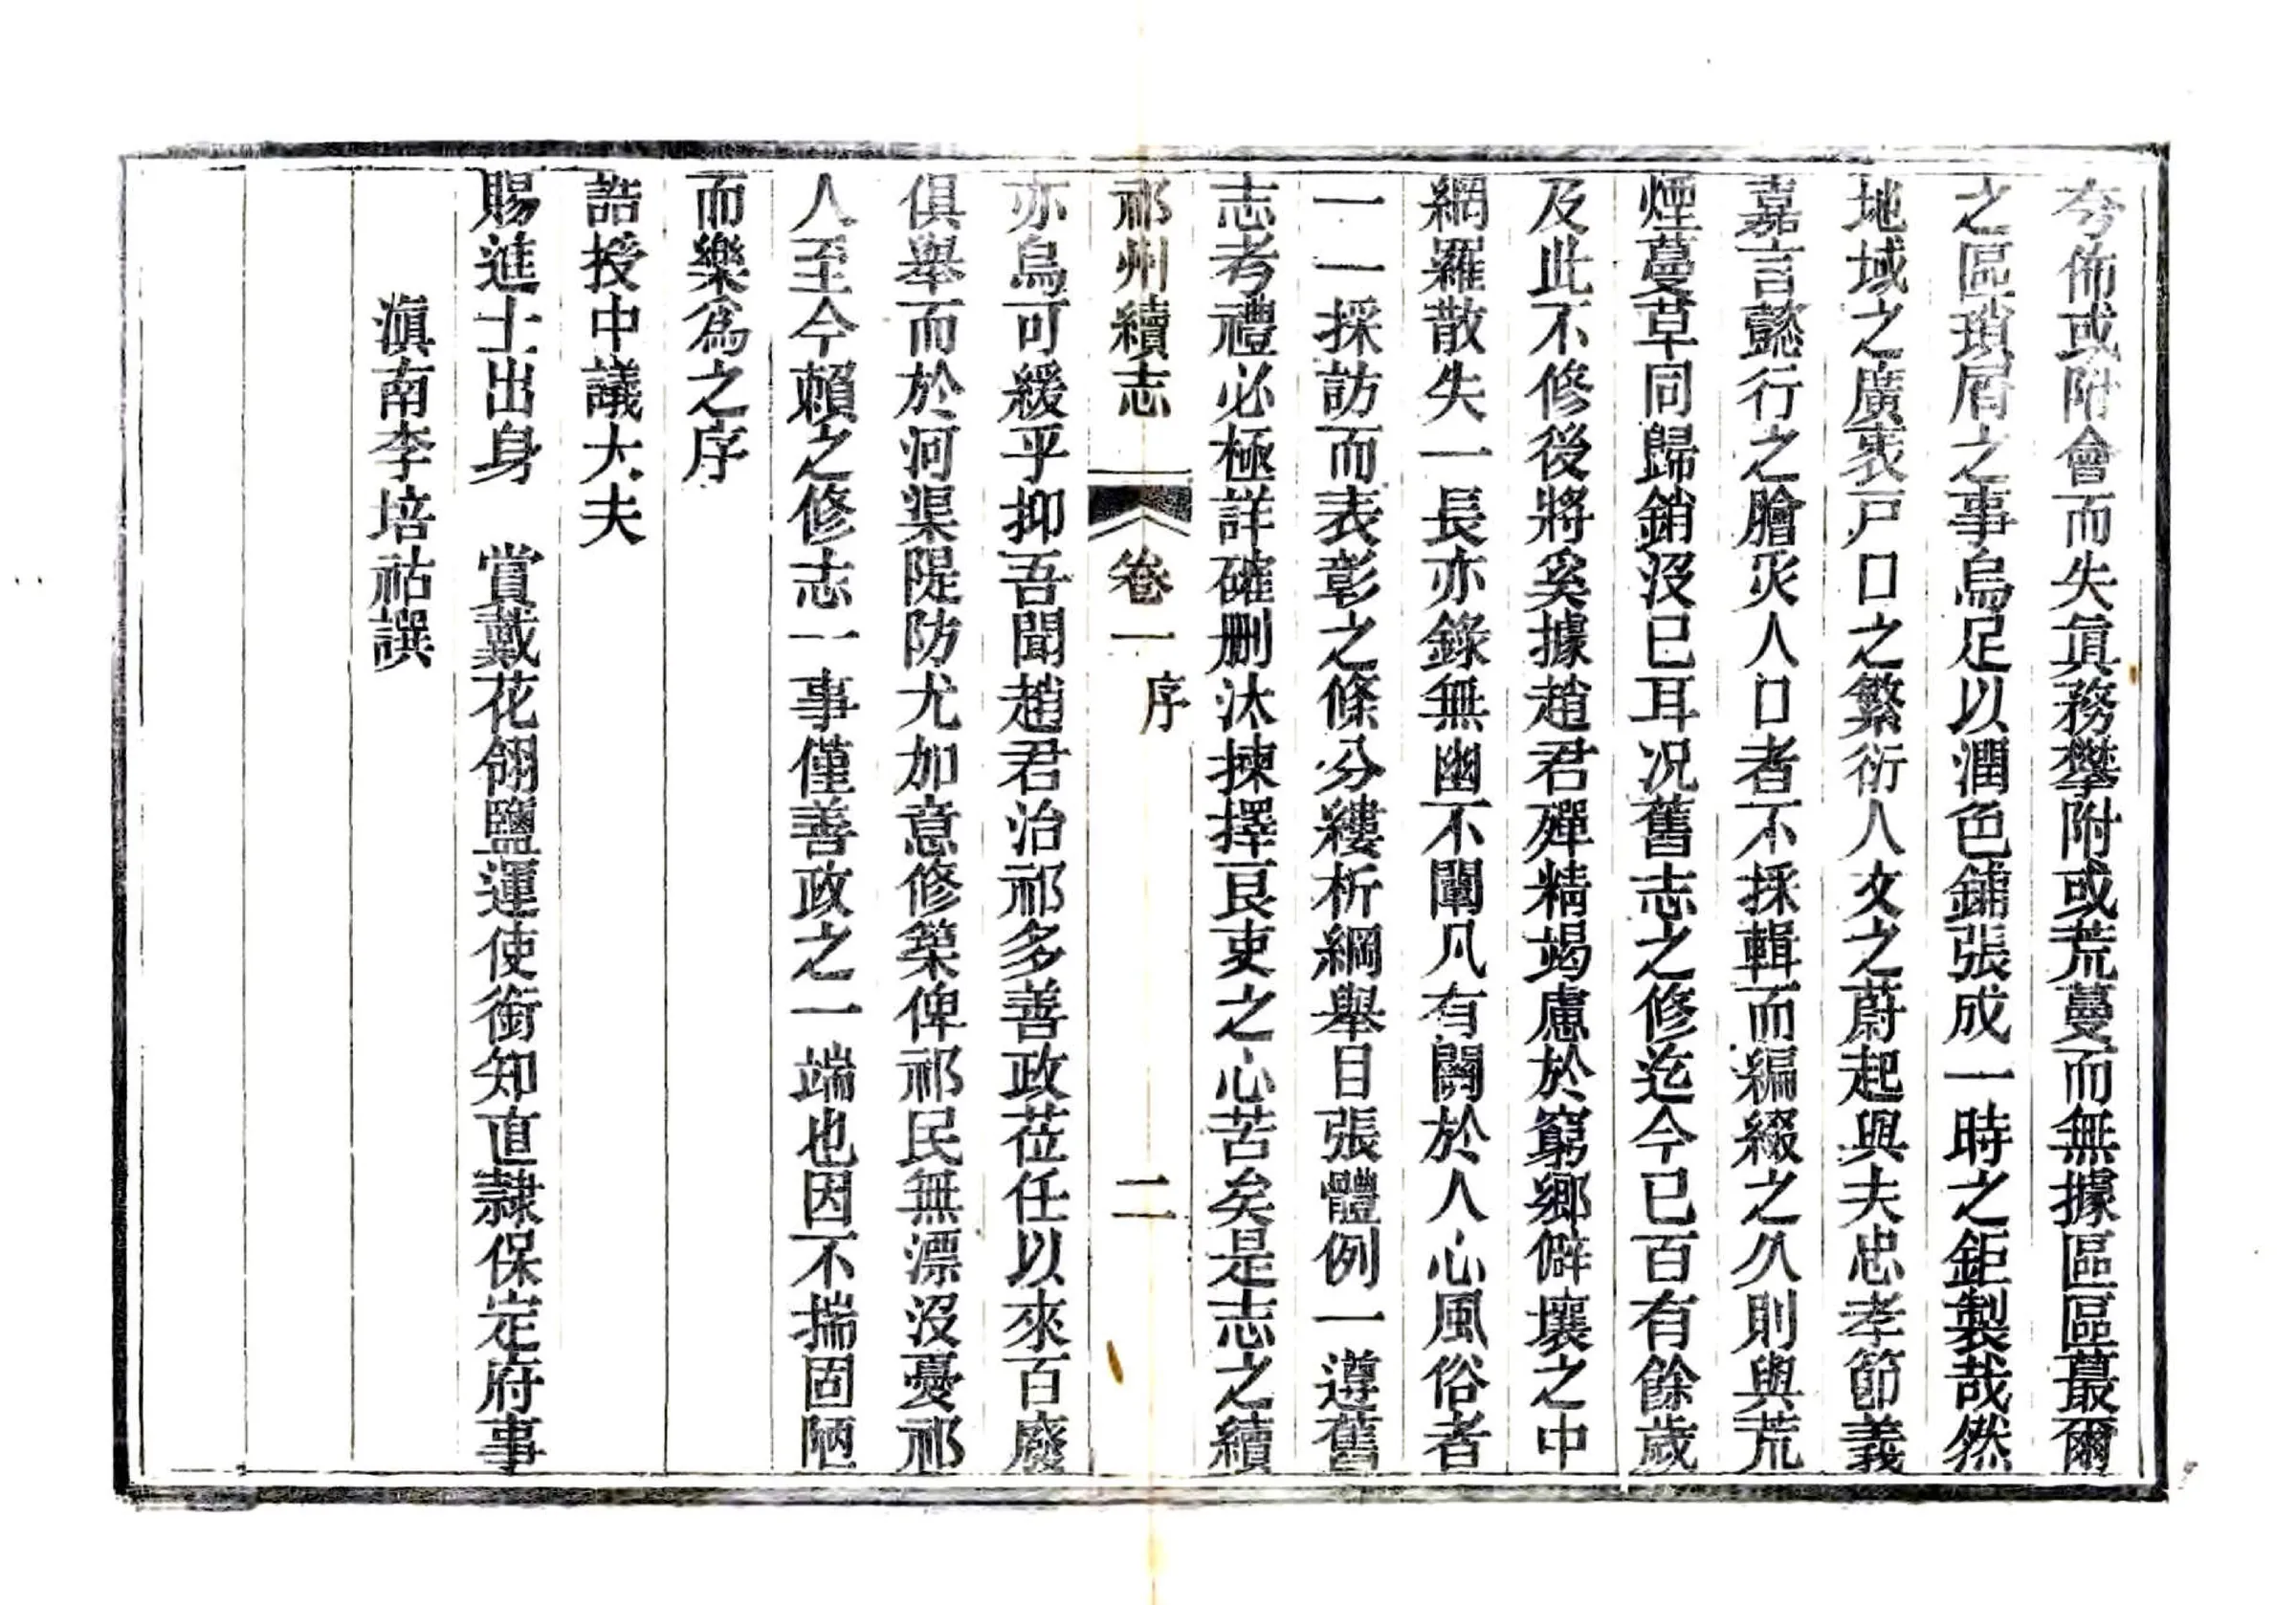 夸佈或附會而失眞務攀附或荒蔓而無據區區蕞爾
之區瑣屑之事烏足以潤色鋪張成一時之鉅製哉然
地域之廣袤戸口之繁衍人文之蔚起與夫忠孝節義
嘉言懿行之膾炙人口者不採輯而編綴之久則與荒
煙蔓草同歸銷沒已耳况舊志之修迄今已百有餘歲
及此不修後將奚據趙君殫精竭慮於窮鄉僻壤之中
網羅散失一長亦錄無幽不闡凡有關於人心風俗者
一一採訪而表彰之條分縷析綱舉目張體例一遵舊
志考禮必極詳確删汰揀擇良吏之心苦矣是志之續
祁州續志 卷一 序 二
亦烏可緩乎抑吾聞趙君治祁多善政莅任以來百廢
俱舉而於河渠隄防尤加意修築俾祁民無漂沒憂祁
人至今賴之修志一事僅善政之一端也因不揣固陋
而樂爲之序
誥授中議大夫
賜進士出身 賞戴花翎鹽運使銜知直隸保定府事
滇南李培祜譔